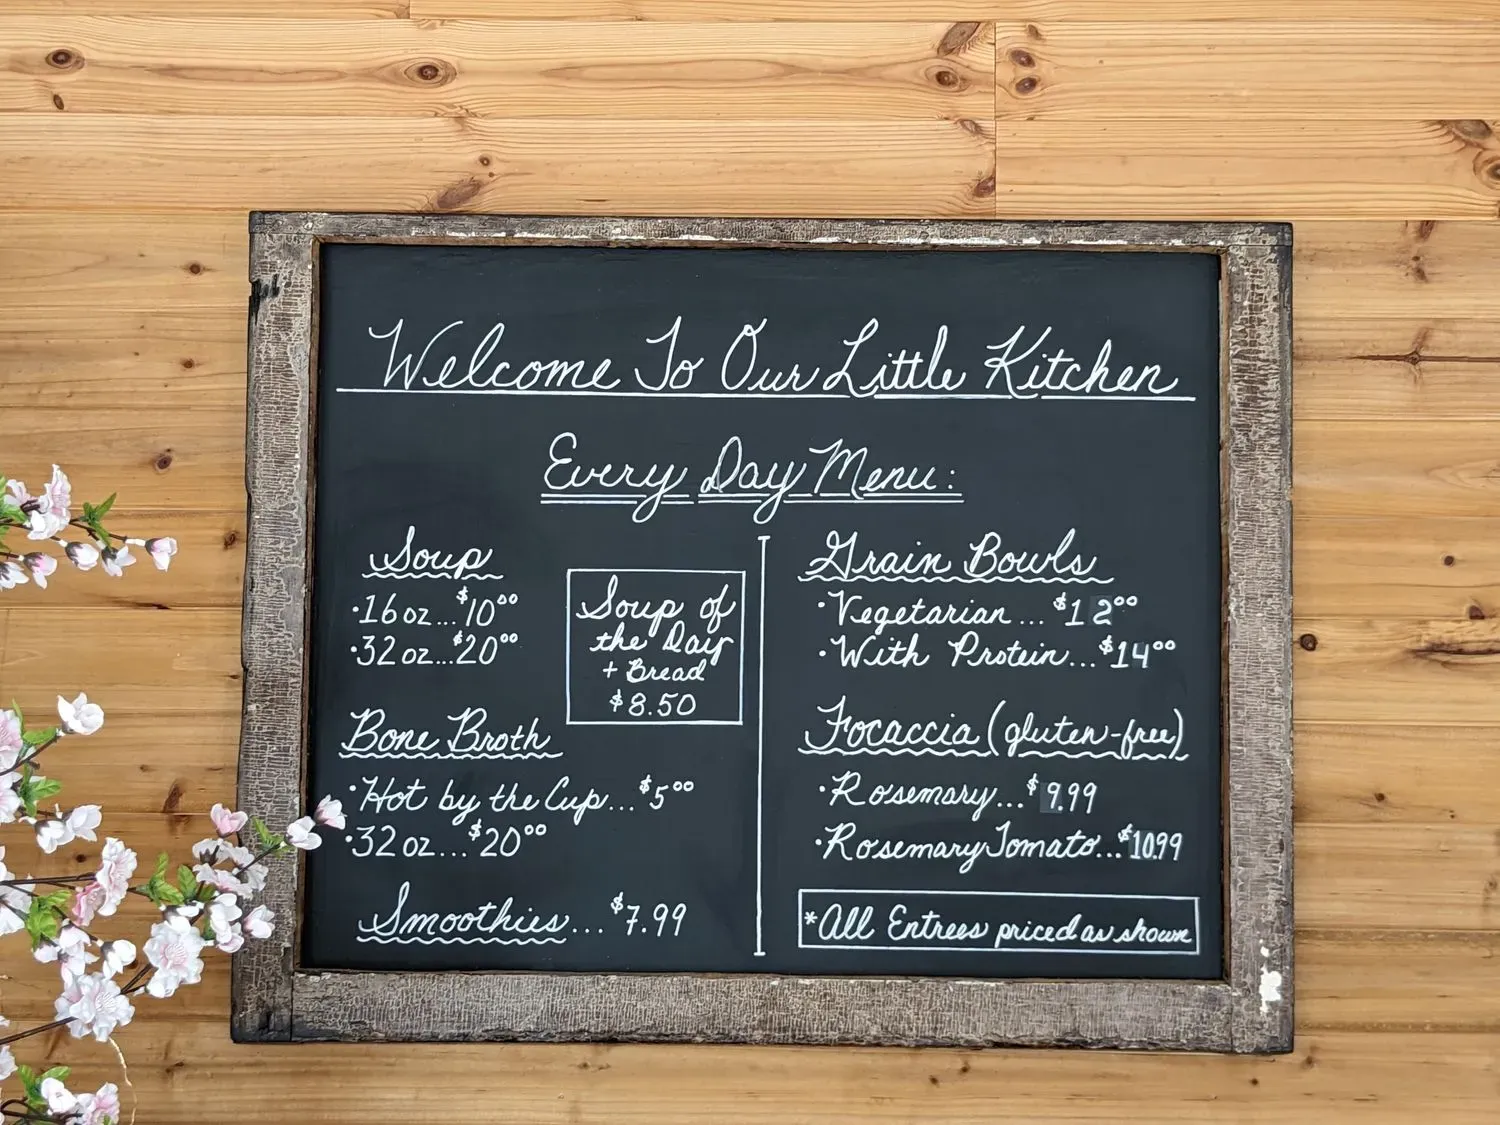 Welcome To Our Little Kitchen
Every Day Menu:
Soup
·16 oz...$10⁰⁰
·32 oz...$20⁰⁰
Soup of
the Day
+ Bread
$8.50
Bone Broth
·Hot by the Cup...$5⁰⁰
·32 oz...$20⁰⁰
Smoothies...$7.99
Grain Bowls
·Vegetarian...$12⁰⁰
·With Protein...$14⁰⁰
Focaccia (gluten-free)
·Rosemary...$9.99
·Rosemary Tomato...$10.99
*All Entrees priced as shown